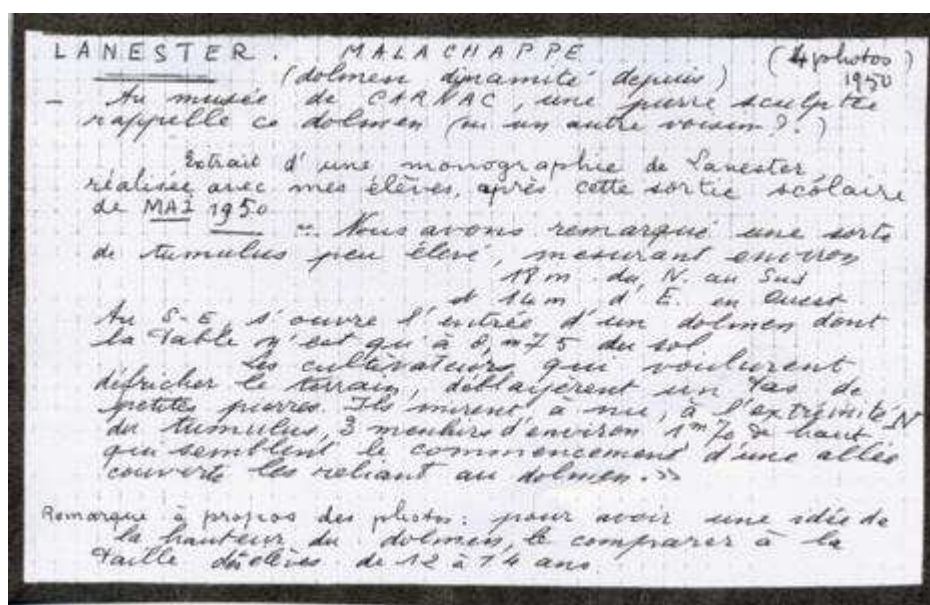 LANESTER. MALACHAPPE (4 photos)
(dolmen dynamité depuis) 1950
- Au musée de CARNAC, une pierre sculptée
rappelle ce dolmen (ou un autre voisin ?.)
Extrait d'une monographie de Lanester
réalisée avec mes élèves, après cette sortie scolaire
de MAI 1950
". Nous avons remarqué une sorte
de tumulus peu élevé, mesurant environ
18 m du N. au Sud
et 14 m d'E. en Ouest
Au S-E s'ouvre l'entrée d'un dolmen dont
la Table n'est qu'à 0,m75 du sol
Les cultivateurs qui voulurent
défricher le terrain, déblayèrent un tas de
petites pierres. Ils mirent à nu, à l'extrémité N
du tumulus, 3 menhirs d'environ 1m70 de haut
qui semblent le commencement d'une allée
couverte les reliant au dolmen.»
Remarque à propos des photos : pour avoir une idée de
la hauteur du dolmen, le comparer à la
taille des élèves de 12 à 14 ans.